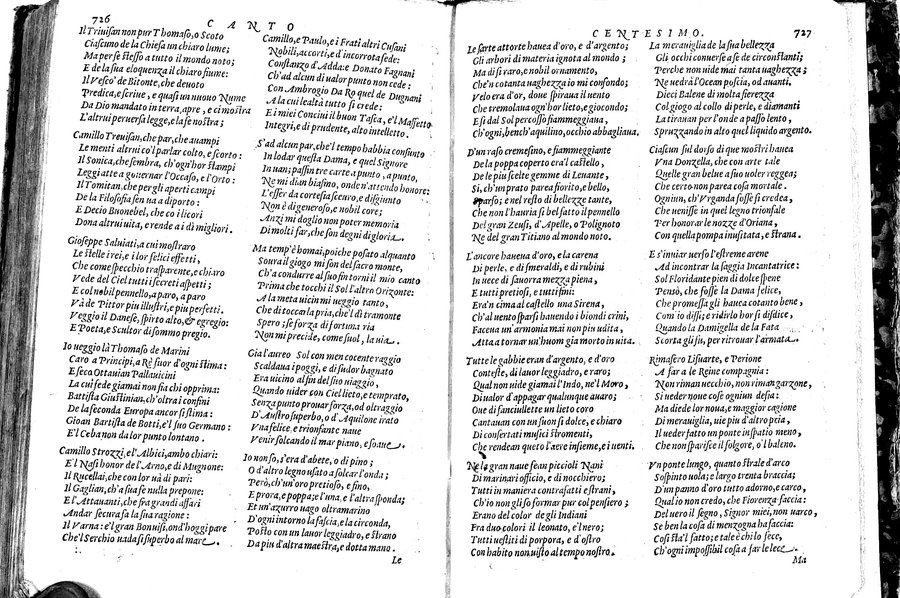 726
CANTO
Il Triuisan non pur Thomaso, o Scoto
Ciascuno de la Chiesa un chiaro lume;
Ma per se stesso a tutto il mondo noto;
E de la sua eloquenza il chiaro fiume:
Il Vesco' de Bitonte, che deuoto
Predica, e scriue, e quasi un nuouo Nume
Da Dio mandato in terra, apre, e ci mostra
L'altrui peruersa legge, e la fe nostra;
Camillo Treuisan, che par, che auampi
Le menti altrui co'l parlar colto, e scorto:
Il Sonica, che sembra, ch'ogn'hor stampi
Leggi atte a gouernar l'Occaso, e l'Orto:
Il Tomitan, che per gli aperti campi
De la Filosofia sen ua a diporto:
E Decio Buonebel, che co i licori
Dona altrui uita, e rende a i dì migliori.
Gioseppe Saluiati, a cui mostraro
Le stelle i rei, e i lor felici effetti,
Che come specchio trasparente, e chiaro
Vede del Ciel tutti i secreti aspetti;
E col nobil pennello, a paro, a paro
Và de Pittor piu illustri, e piu perfetti.
Veggio il Danese, spirto alto, & egregio:
E Poeta, e Scultor di sommo pregio.
Io ueggio là Thomaso de Marini
Caro a Principi, a Rè fuor d'ogni stima:
E seco Ottauian Pallauicini
La cui fede giamai non fia chi opprima:
Battista Giustinian, ch'oltra i confini
De la seconda Europa ancor si stima:
Gioan Battista de Botti, e'l suo Germano:
E'l Cebà non da lor punto lontano.
Camillo Strozzi, e l'Albici, ambo chiari:
E'l Nasi honor de l'Arno, e di Mugnone:
Il Rucellai, che con lor uà di pari:
Il Gaglian, ch'a sua fè nulla prepone:
E l'Attauanti, che fra grandi affari
Andar secura fa la sua ragione:
Il Varna: e'l gran Bonuisi, ond'hoggi pare
Che'l Serchio uada sì superbo al mare.
Camillo, e Paulo, e i Frati altri Cusani
Nobili, accorti, e d'incorrotta fede:
Constanzo d'Adda: e Donato Fagnani
Ch'ad alcun di ualor punto non cede:
Con Ambrogio Da Ro quel de Dugnani
A la cui lealtà tutto si crede:
E i miei Concini il buon Tasca, e'l Maffetto
Integri, e di prudente, alto intelletto.
S'ad alcun par, che'l tempo habbia consunto
In lodar questa Dama, e quel Signore
In uan; passin tre carte a punto, a punto,
Ne mi dian biasmo, onde n'attendo honore:
L'esser da cortesia sceuro, e disgiunto
Non è di generoso, e nobil core;
Anzi mi doglio non poter memoria
Di molti far, che son degni di gloria.
Ma temp'è homai, poiche posato alquanto
Soura il giogo mi son del sacro monte,
Ch'a condurre al suo fin torni il mio canto
Prima che tocchi il Sol l'altro Orizonte:
A la meta uicin mi ueggio tanto,
Che di toccarla pria, che'l dì tramonte
Spero; se forza di fortuna ria
Non mi precide, come suol, la uia.
Già l'aureo Sol con men cocente raggio
Scaldaua i poggi, e di sudor bagnato
Era uicino al fin del suo uiaggio,
Quando uider con Ciel lieto, e temprato,
Senza punto prouar forza, od oltraggio
D'Austro superbo, o d'Aquilone irato
Vna felice, e trionfante naue
Venir solcando il mar piano, e soaue.
Io non so, s'era d'abete, o di pino;
O d'altro legno usato a solcar l'onda;
Però, ch'un'oro pretioso, e fino,
E prora, e poppa; e l'una, e l'altra sponda;
Et un'azurro uago oltramarino
D'ogni intorno la fascia, e la circonda,
Posto con un lauor leggiadro, e strano
Da piu d'altra maestra, e dotta mano.
Le
CENTESIMO.
727
Le sarte attorte hauea d'oro, e d'argento;
Gli arbori di materia ignota al mondo;
Ma di sì raro, e nobil ornamento,
Che'n cotanta uaghezza io mi confondo;
Velo era d'or, doue spiraua il uento
Che tremolaua ogn'hor lieto, e giocondo;
E si dal Sol percosso fiammeggiaua,
Ch'ogni, bench'aquilino, occhio abbagliaua.
D'un raso cremesino, e fiammeggiante
De la poppa coperto era'l castello,
De le piu scelte gemme di Leuante,
Sì, ch'un prato parea fiorito, e bello,
Sparso; e nel resto di bellezze tante,
Che non l'hauria si bel fatto il pennello
Del gran Zeusi, d'Apelle, o Polignoto
Ne del gran Titiano al mondo noto.
L'ancore haueua d'oro, e la carena
Di perle, e di smeraldi, e di rubini
In uece di sauorra mezza piena,
E tutti pretiosi, e tutti fini:
Era'n cima al castello una Sirena,
Ch'al uento sparsi hauendo i biondi crini,
Faceua un'armonia mai non piu udita,
Atta a tornar un'huom gia morto in uita.
Tutte le gabbie eran d'argento, e d'oro
Conteste, di lauor leggiadro, e raro;
Qual non uide giamai l'Indo, ne'l Moro,
Di ualor d'appagar qualunque auaro;
Oue di fanciullette un lieto coro
Cantauan con un suon sì dolce, e chiaro
Di consertati musici stromenti,
Che rendean queto l'aere insieme, e i uenti.
Ne la gran naue fean piccioli Nani
Di marinari officio, e di nocchiero;
Tutti in maniera contrafatti e strani,
Ch'io non gli so formar pur col pensiero;
Erano del color de gli Indiani
Fra duo colori il leonato, e'l nero;
Tutti uestiti di porpora, e d'ostro
Con habito non uisto al tempo nostro.
La merauiglia de la sua bellezza
Gli occhi conuerse a se de circonstanti;
Perche non uide mai tanta uaghezza;
Ne uedrà l'Ocean poscia, od auanti.
Dieci Balene di molta fierezza
Col giogo al collo di perle, e diamanti
La tirauan per l'onde a passo lento,
Spruzzando in alto quel liquido argento.
Ciascun sul dorso di que mostri hauea
Vna Donzella, che con arte tale
Quelle gran belue a suo uoler reggea;
Che certo non parea cosa mortale.
Ogniun, ch'Vrganda fosse si credea,
Che uenisse in quel legno trionfale
Per honorar le nozze d'Oriana,
Con quella pompa inusitata, e strana.
E s'inuiar uerso l'estreme arene
Ad incontrar la saggia Incantatrice:
Sol Floridante pien di dolce spene
Pensò, che fosse la Dama felice,
Che promessa gli hauea cotanto bene,
Com'io dissi; e ridirlo hor si disdice,
Quando la Damigella de la Fata
Scorta gli fu, per ritrouar l'armata.
Rimasero Lisuarte, e Perione
A far a le Reine compagnia:
Non riman uecchio, non riman garzone,
Sì ueder noue cose ogniun desia:
Ma diede lor noua, e maggior cagione
Di merauiglia, uie piu d'altra pria,
Il ueder fatto un ponte in spatio meno,
Che non sparisce il folgore, o'l baleno.
Vn ponte lungo, quanto strale d'arco
Sospinto uola; e largo trenta braccia;
D'un panno d'oro tutto adorno, e carco,
Qual io non credo, che Fiorenza faccia:
Del uero il segno, Signor miei, non uarco,
Se ben la cosa di menzogna ha faccia:
Così sta'l fatto; e tale è chi lo fece,
Ch'ogni impossibil cosa a far le lece.
Ma